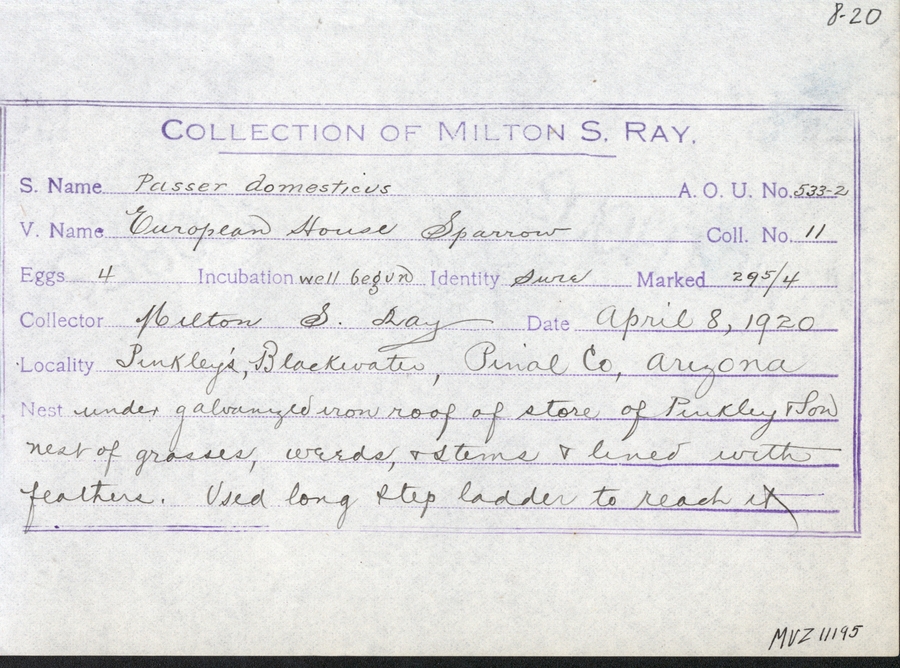 8-20
COLLECTION OF MILTON S. RAY.
S. Name Passer domesticus A. O. U. No. 533-2
V. Name European House Sparrow Coll. No. 11
Eggs 4 Incubation well begun Identity Sure Marked 295/4
Collector Milton S. Ray Date April 8, 1920
Locality Pinkley's, Blackwater, Pinal Co, Arizona
Nest under galvanized iron roof of store of Pinkley & Son
nest of grasses, weeds, & stems & lined with
feathers. Used long step ladder to reach it
MVZ 11195